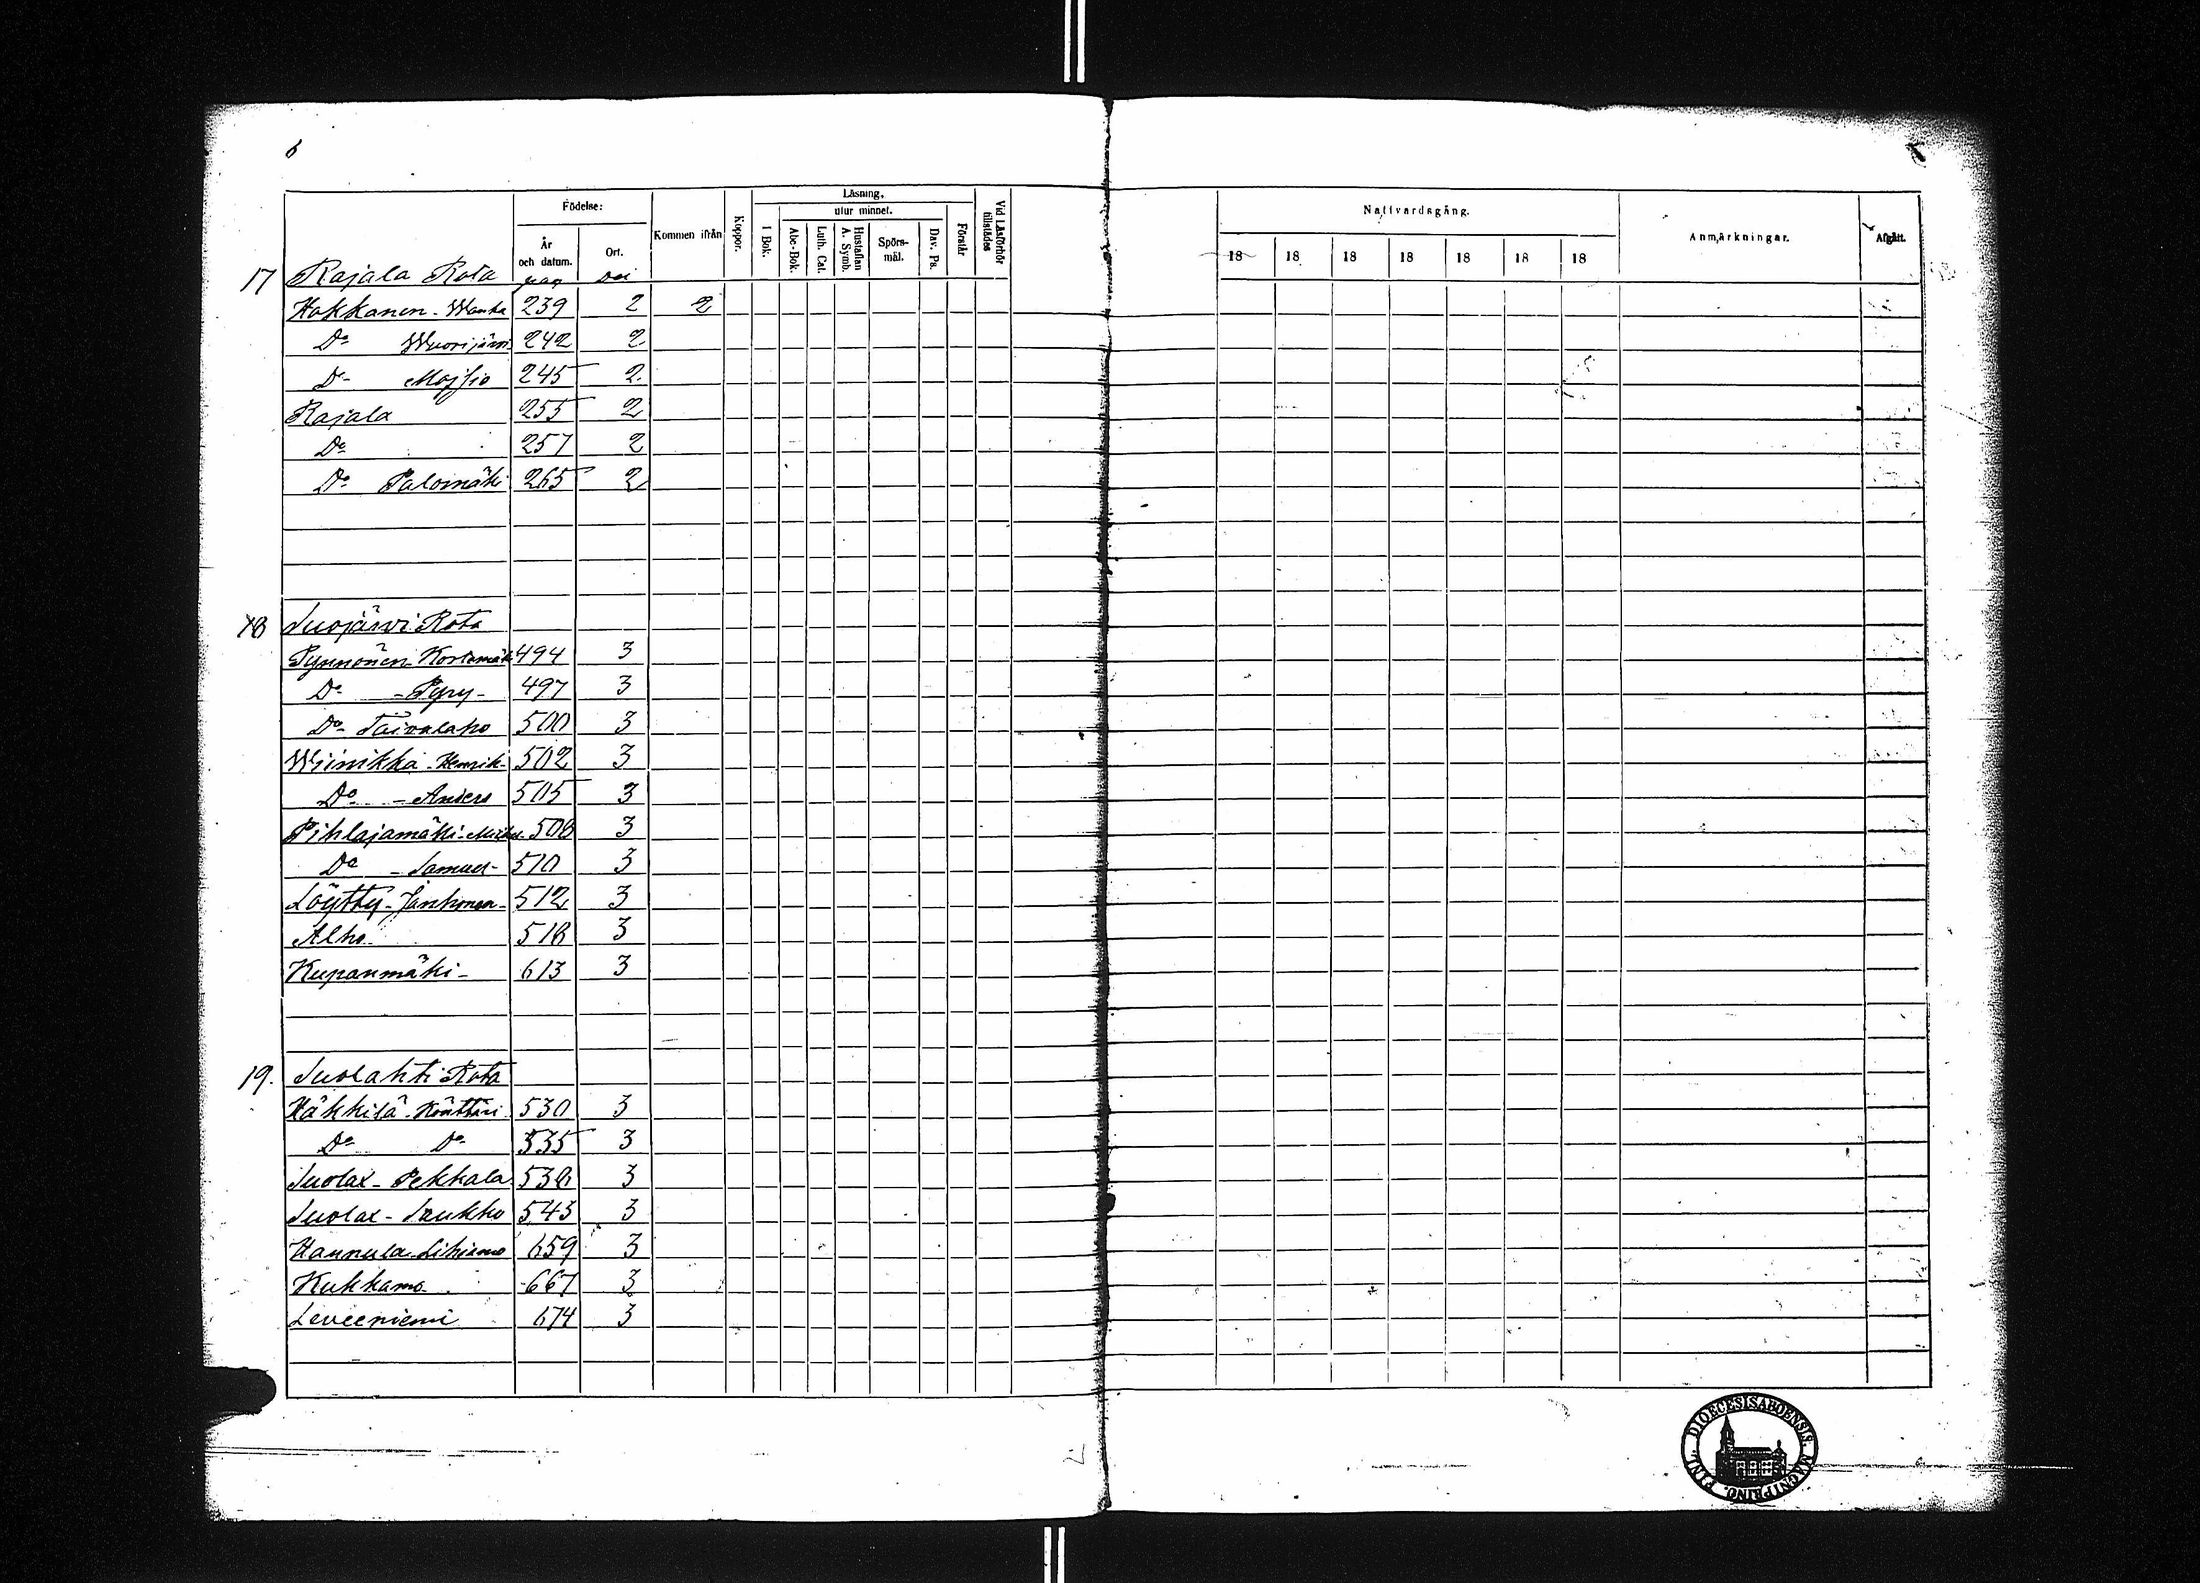 6
Läsning.
Födelse:
utur minnet.
Nattvardsgång.
År och datum.
Ort.
Kommen ifrån
Koppor.
I Bok.
Abc-Bok.
Luth. Cat.
Hustaflan A. Symb.
Spörsmål.
Dav. Ps.
Förstår
Vid Läsförhör tillstädes
18 18 18 18 18 18 18
Anmärkningar.
Afgått.
17 Rajala Rota pag Del
Hokkanen - 239 2 2
Do Wuorijärvi 242 2
Do 245 2
Rajala 255 2
Do 257 2
Do Palomäki 265 2
18 Suojärvi Rota
Pynnönen - 494 3
Do - Pyry - 497 3
Do - Taivalaho 500 3
Wiinikka - Henrik - 502 3
Do - Anders 505 3
Pihlajamäki - 508 3
Do - Samuel - 510 3
Löytty - Janhonen - 512 3
Alho 518 3
Kupanmäki - 613 3
19. Suolahti Rota
Häkkilä - Könttäri 530 3
Do Do 535 3
Suolax - Pekkala 538 3
Suolax - Soukko 543 3
Hannula - 659 3
Kukkamo 667 3
Leveeniemi 674 3
DIOECESIS ABOENSIS. MAGNI PRINC. FINL.